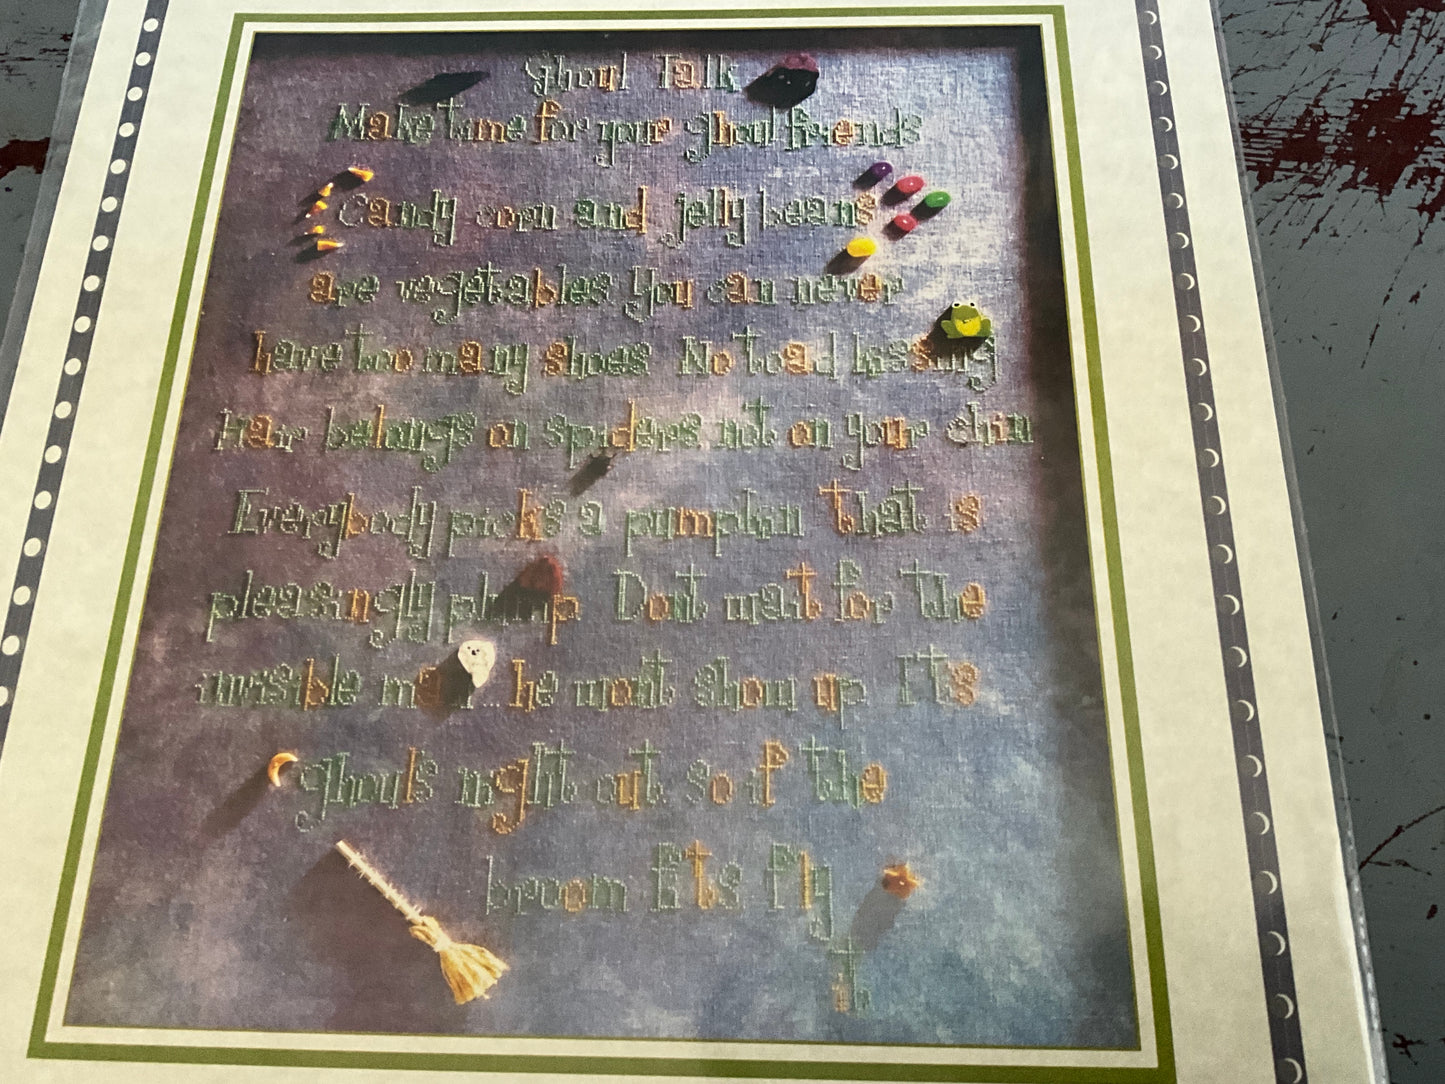 Ghoul Talk
Make time for your ghoul friends
Candy corn and jelly beans
are vegetables You can never
have too many shoes No toad kissing
Hair belongs on spiders not on your chin
Everybody picks a pumpkin that is
pleasingly plump Don't wait for the
invisible man... he won't show up It's
ghouls night out so if the
broom fits fly
it